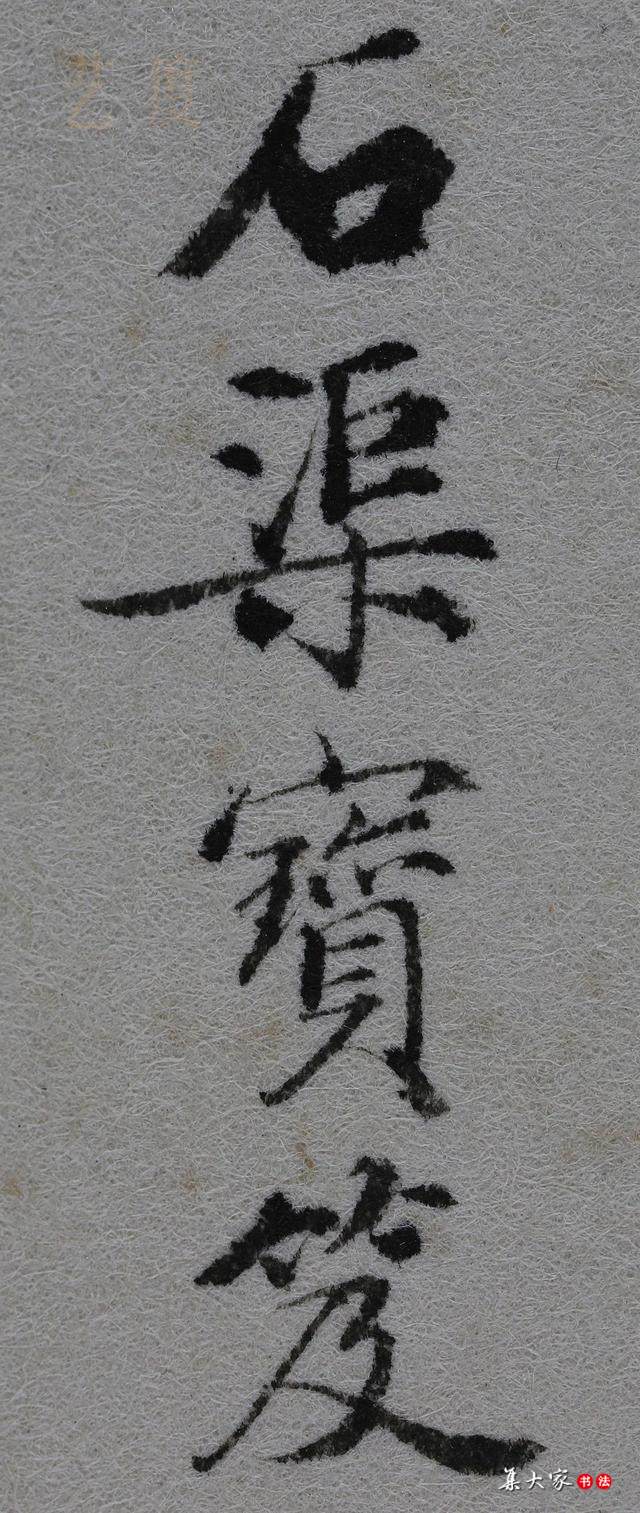 石渠寶笈
艺度
集大家书法